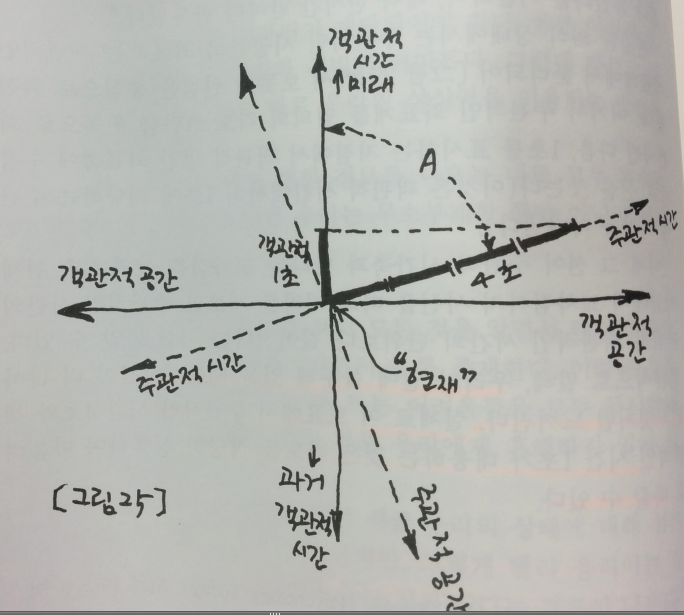 객관적
시간
↑미래
A
주관적 시간
객관적
1초
4초
객관적 공간
객관적
공간
주관적 시간
"현재"
↓
과거
객관적
시간
주관적 공간
[그림 2탁]